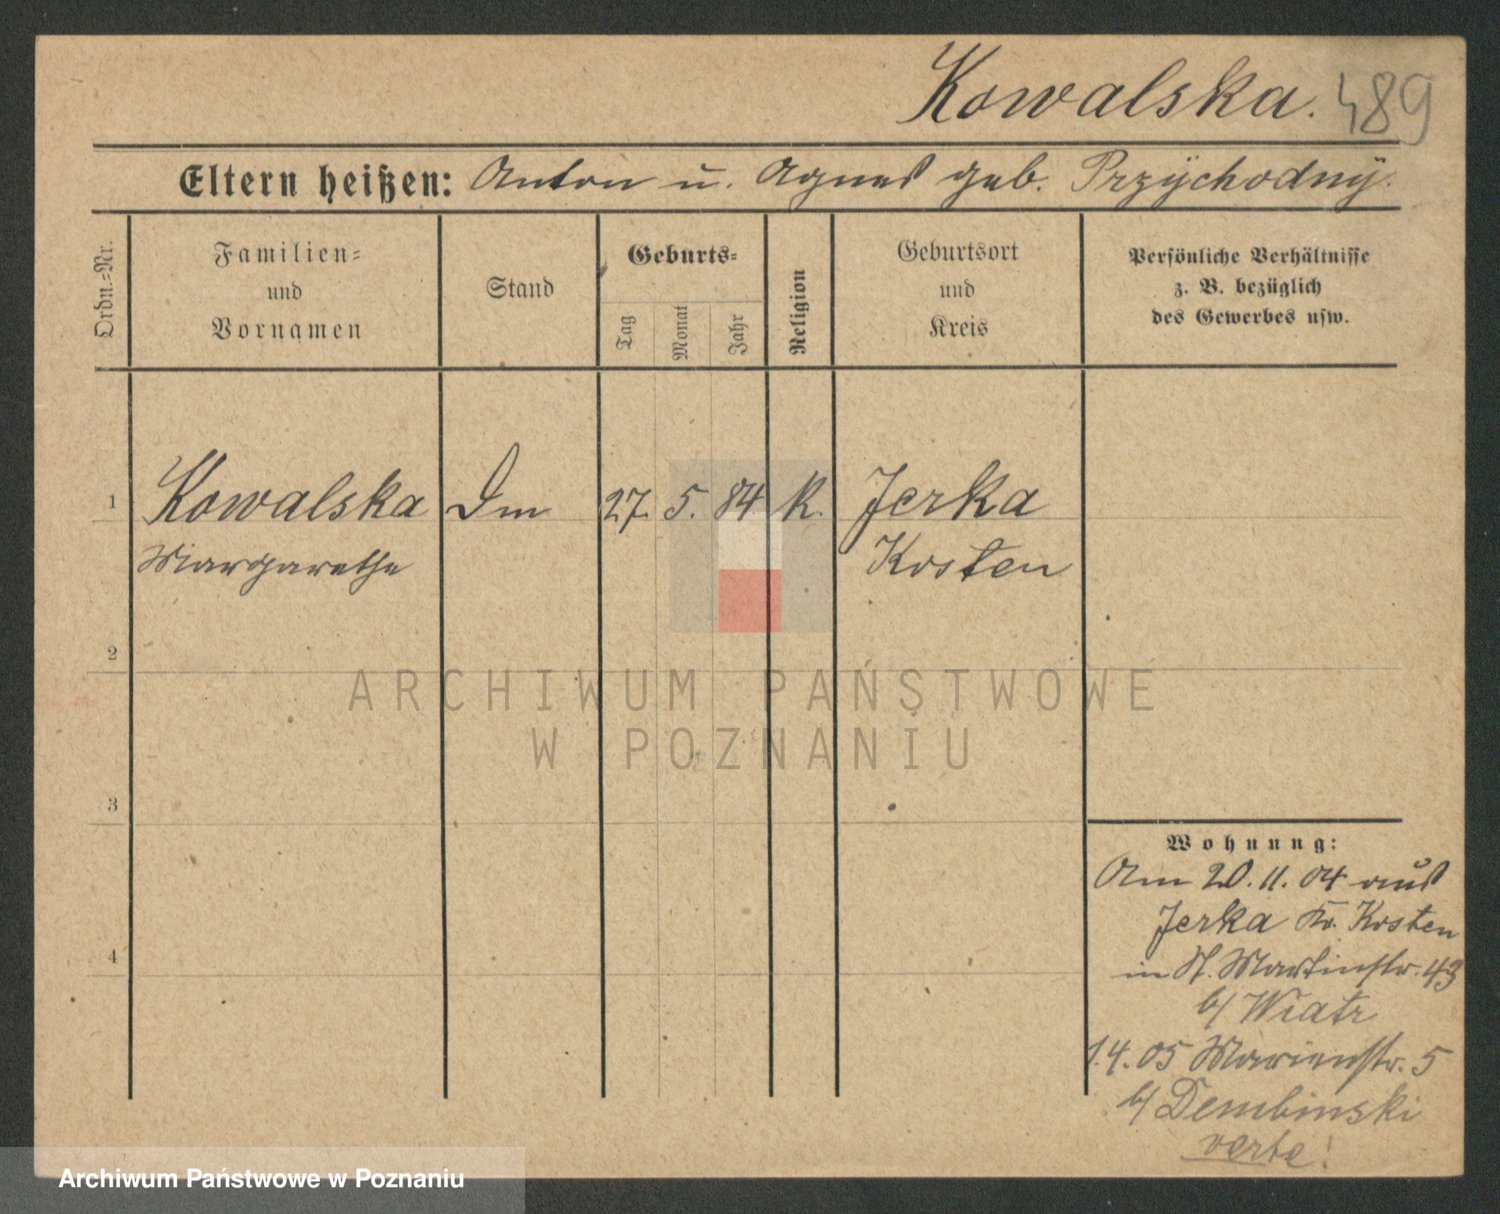 Kowalska. 489
Eltern heißen: Anton u. Agnes geb. Przÿchodnÿ.
Ordn.=Nr.
Familien=
und
Vornamen
Stand
Geburts=
Tag
Monat
Jahr
Religion
Geburtsort
und
Kreis
Persönliche Verhältnisse
z. B. bezüglich
des Gewerbes usw.
1 Kowalska Dm 27. 5. 84 K. Jerka
Margarethe Kosten
2
3
4
Wohnung:
Am 20.11.04 aus
Jerka Kr. Kosten
in St. Martinstr. 43
b/ Wiatr
1.4.05 Marienstr. 5
b/ Dembinski
verte!
ARCHIWUM PAŃSTWOWE
W POZNANIU
Archiwum Państwowe w Poznaniu